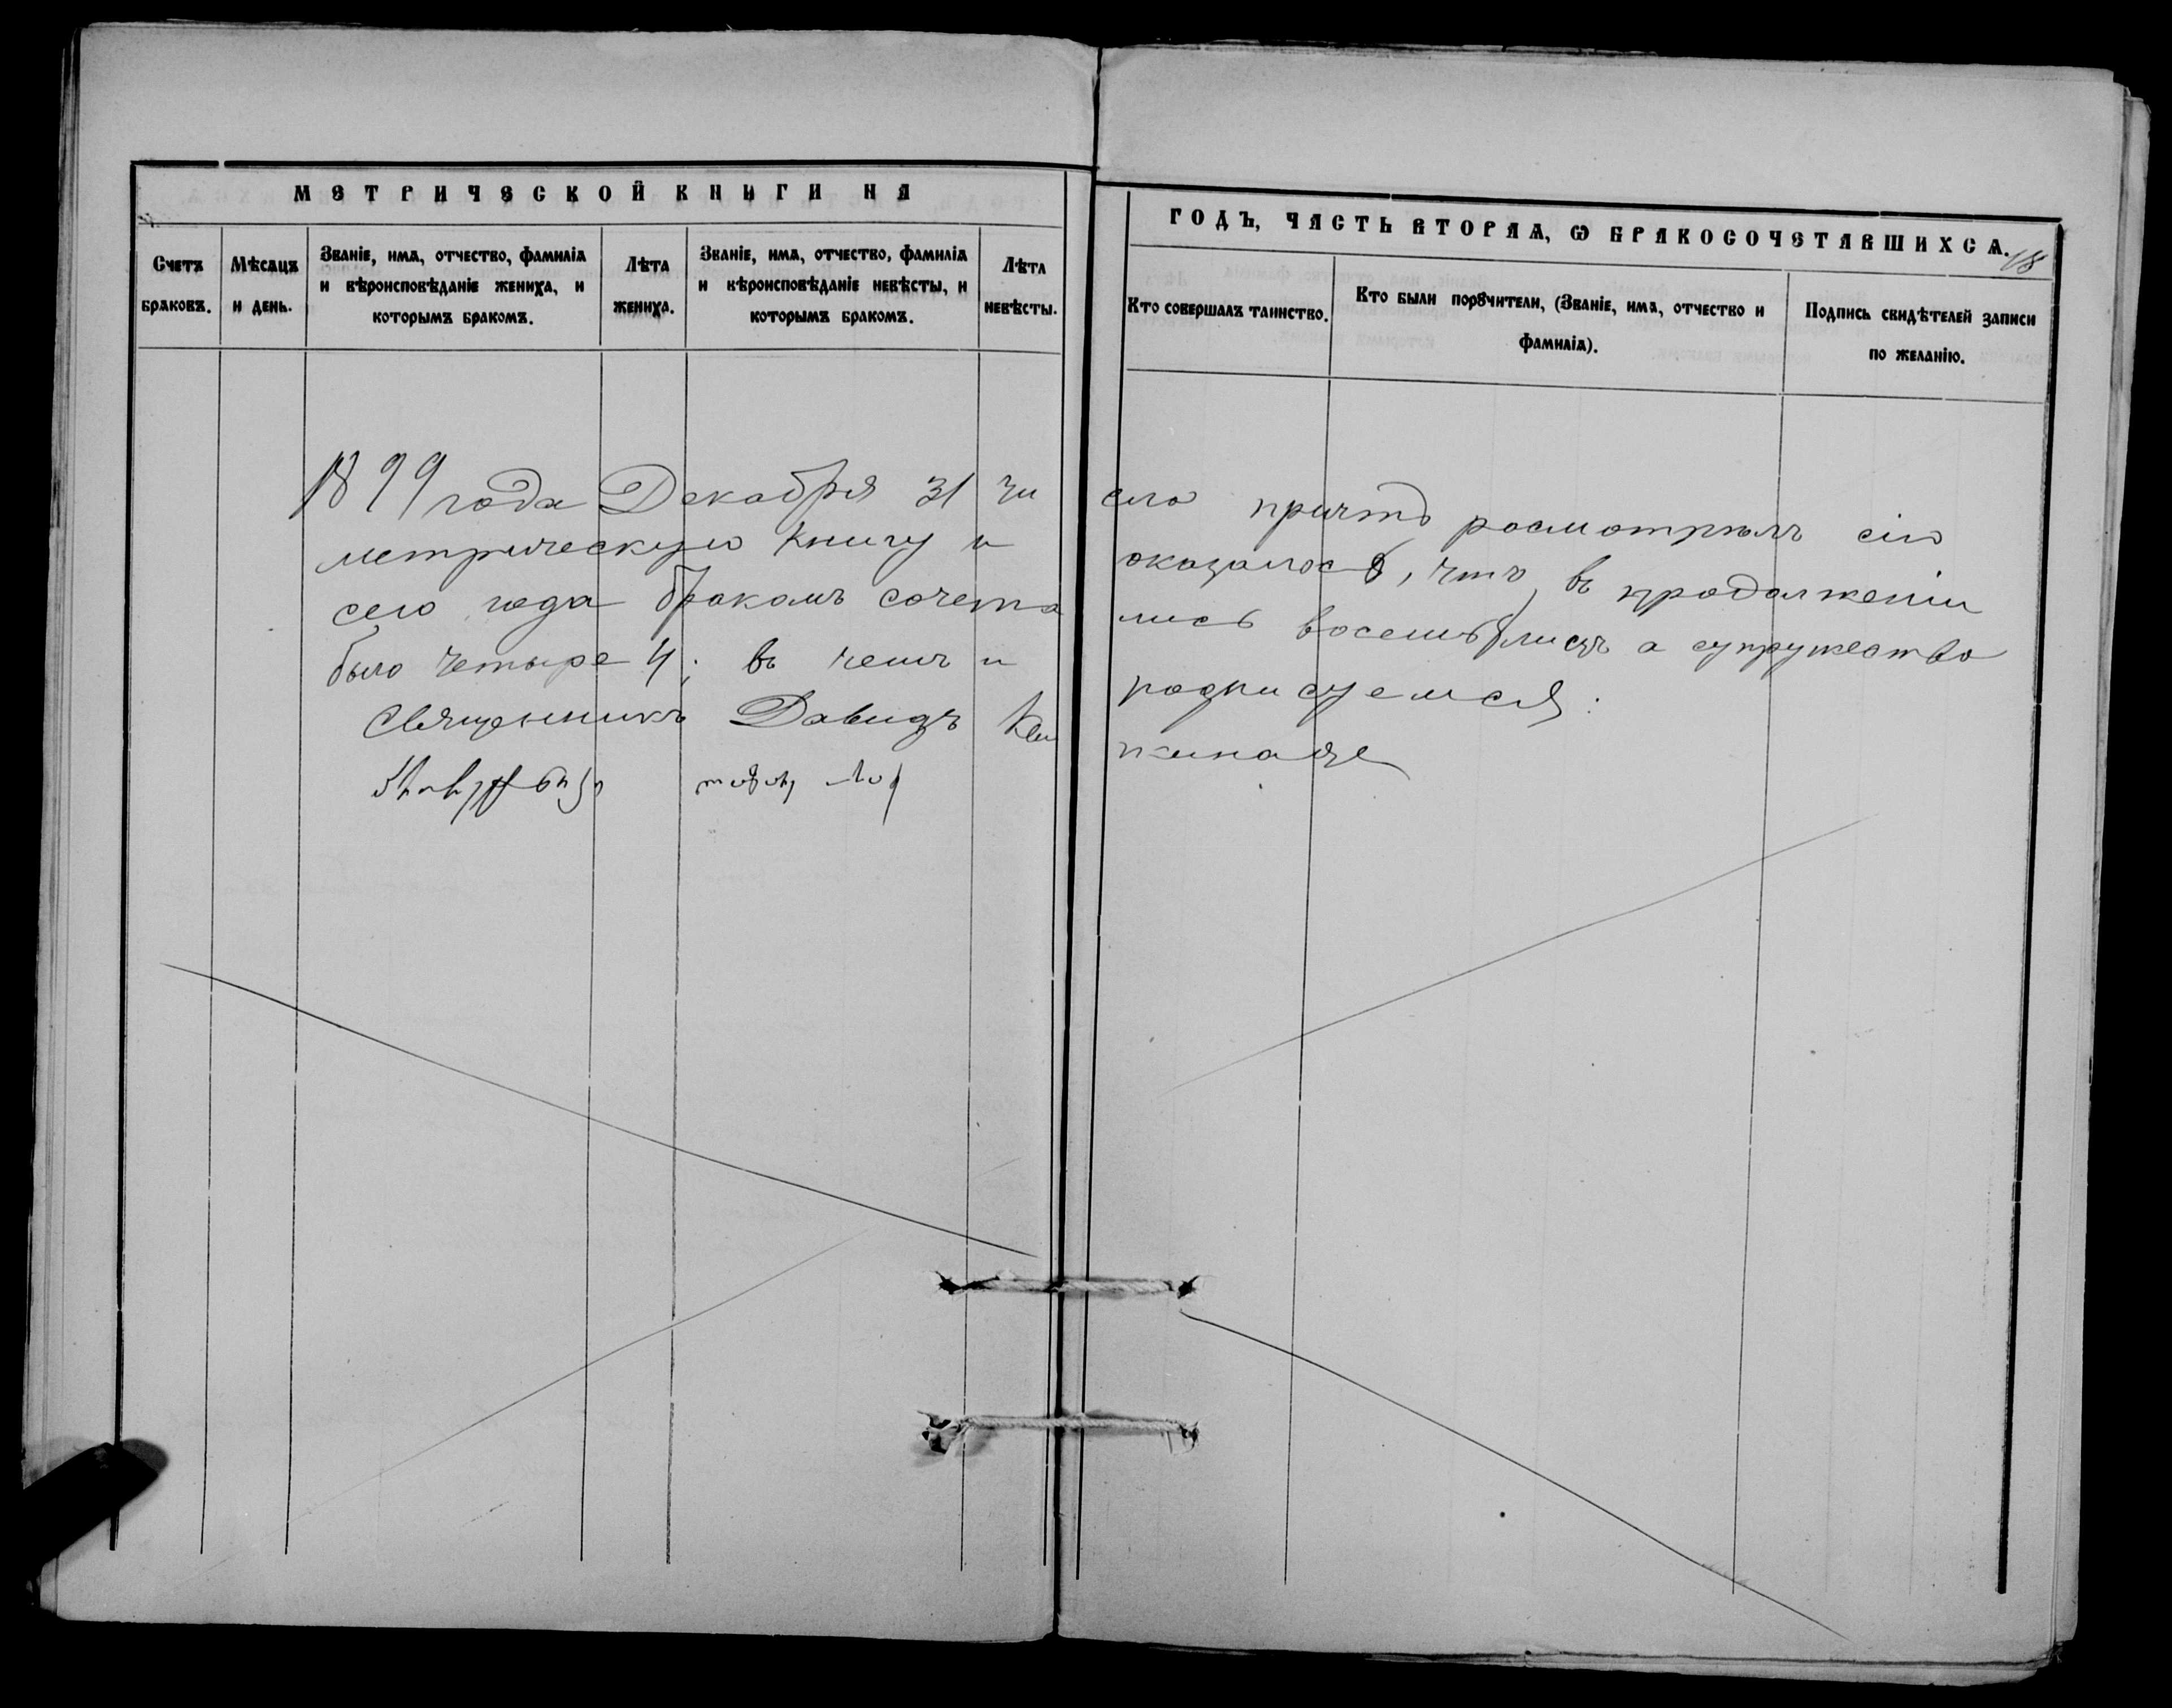 МЕТРИЧЕСКОЙ КНИГИ НА
ГОДЪ, ЧАСТЬ ВТОРАѦ, Ѡ БРАКОСОЧЕТАВШИХСѦ.
18
Счетъ браковъ.
Мѣсѧцъ и день.
Званіе, имѧ, отчество, фамиліѧ и вѣроисповѣданіе жениха, и которымъ бракомъ.
Лѣта жениха.
Званіе, имѧ, отчество, фамиліѧ и вѣроисповѣданіе невѣсты, и которымъ бракомъ.
Лѣта невѣсты.
Кто совершалъ таинство.
Кто были порꙋчители, (Званіе, имѧ, отчество и фамиліѧ).
Подпись свидѣтелей записи по желанію.
1899 года Декабря 31 чи сло причтъ росмотрѣлъ сію
метрическую книгу и оказалось, что въ продолженіи
сего года бракомъ сочета лись восемь лицъ а супружество
было четыре 4; въ чемъ и подписуемся:
Священникъ Давидъ